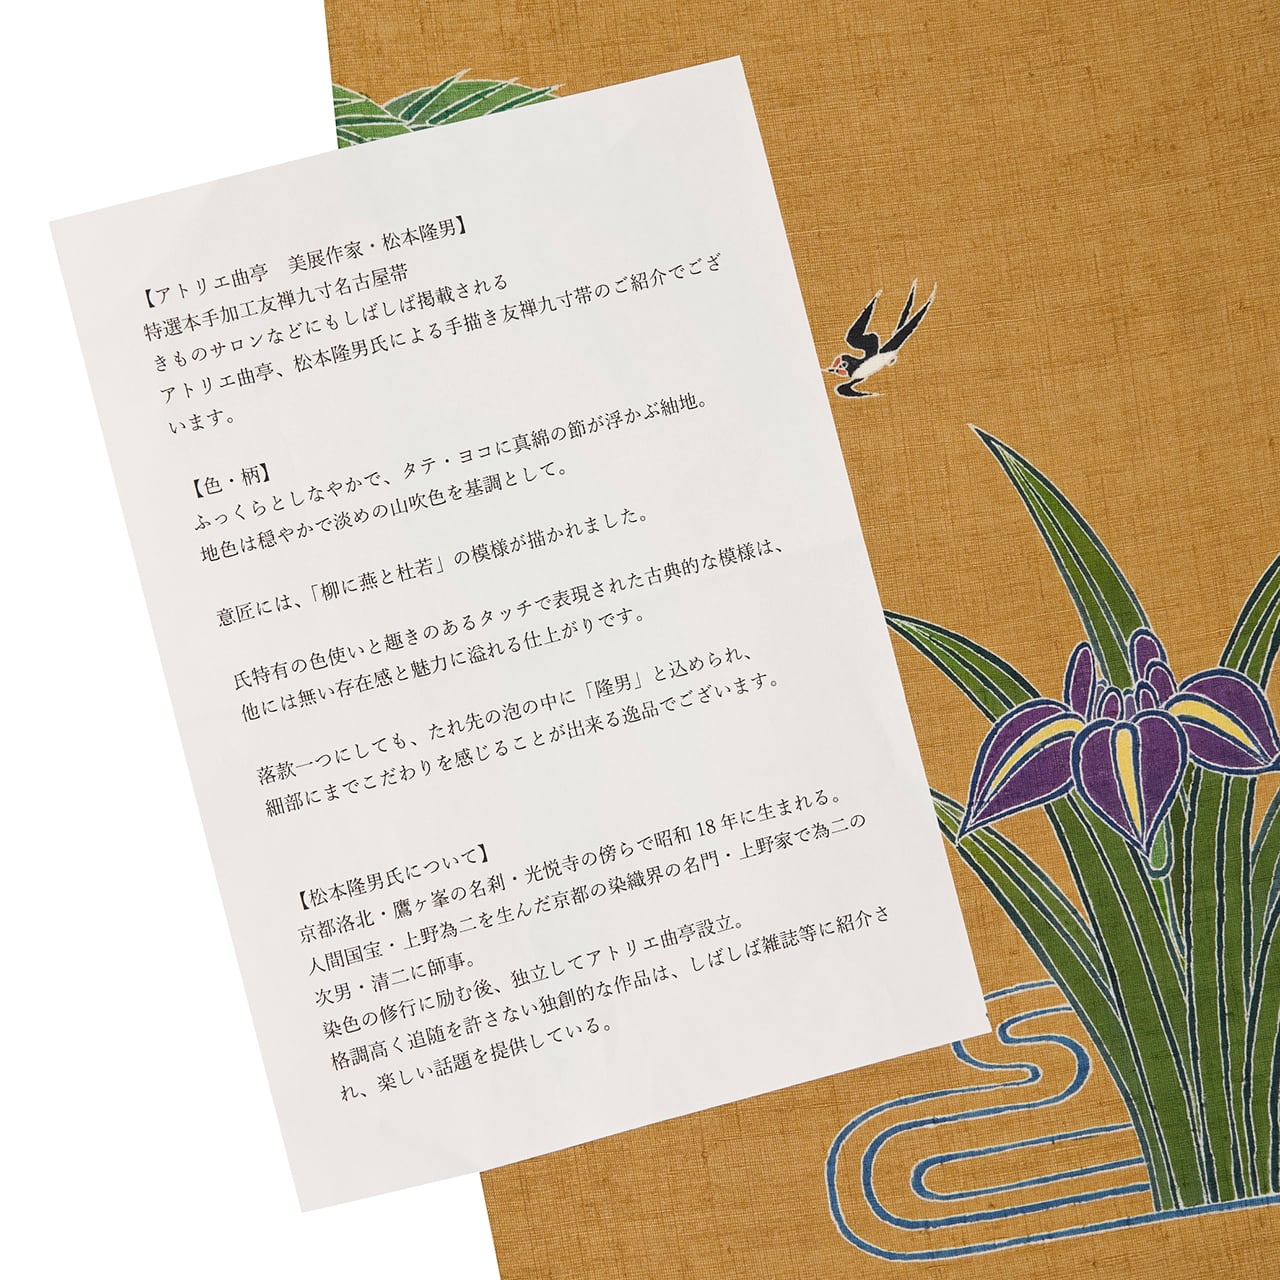 【アトリエ曲亭　美展作家・松本隆男】
特選本手加工友禅九寸名古屋帯
きものサロンなどにもしばしば掲載される
アトリエ曲亭、松本隆男氏による手描き友禅九寸帯のご紹介でござ
います。
【色・柄】
ふっくらとしなやかで、タテ・ヨコに真綿の節が浮かぶ紬地。
地色は穏やかで淡めの山吹色を基調として。
意匠には、「柳に燕と杜若」の模様が描かれました。
氏特有の色使いと趣きのあるタッチで表現された古典的な模様は、
他には無い存在感と魅力に溢れる仕上がりです。
落款一つにしても、たれ先の泡の中に「隆男」と込められ、
細部にまでこだわりを感じることが出来る逸品でございます。
【松本隆男氏について】
京都洛北・鷹ヶ峯の名刹・光悦寺の傍らで昭和 18 年に生まれる。
人間国宝・上野為二を生んだ京都の染織界の名門・上野家で為二の
次男・清二に師事。
染色の修行に励む後、独立してアトリエ曲亭設立。
格調高く追随を許さない独創的な作品は、しばしば雑誌等に紹介さ
れ、楽しい話題を提供している。